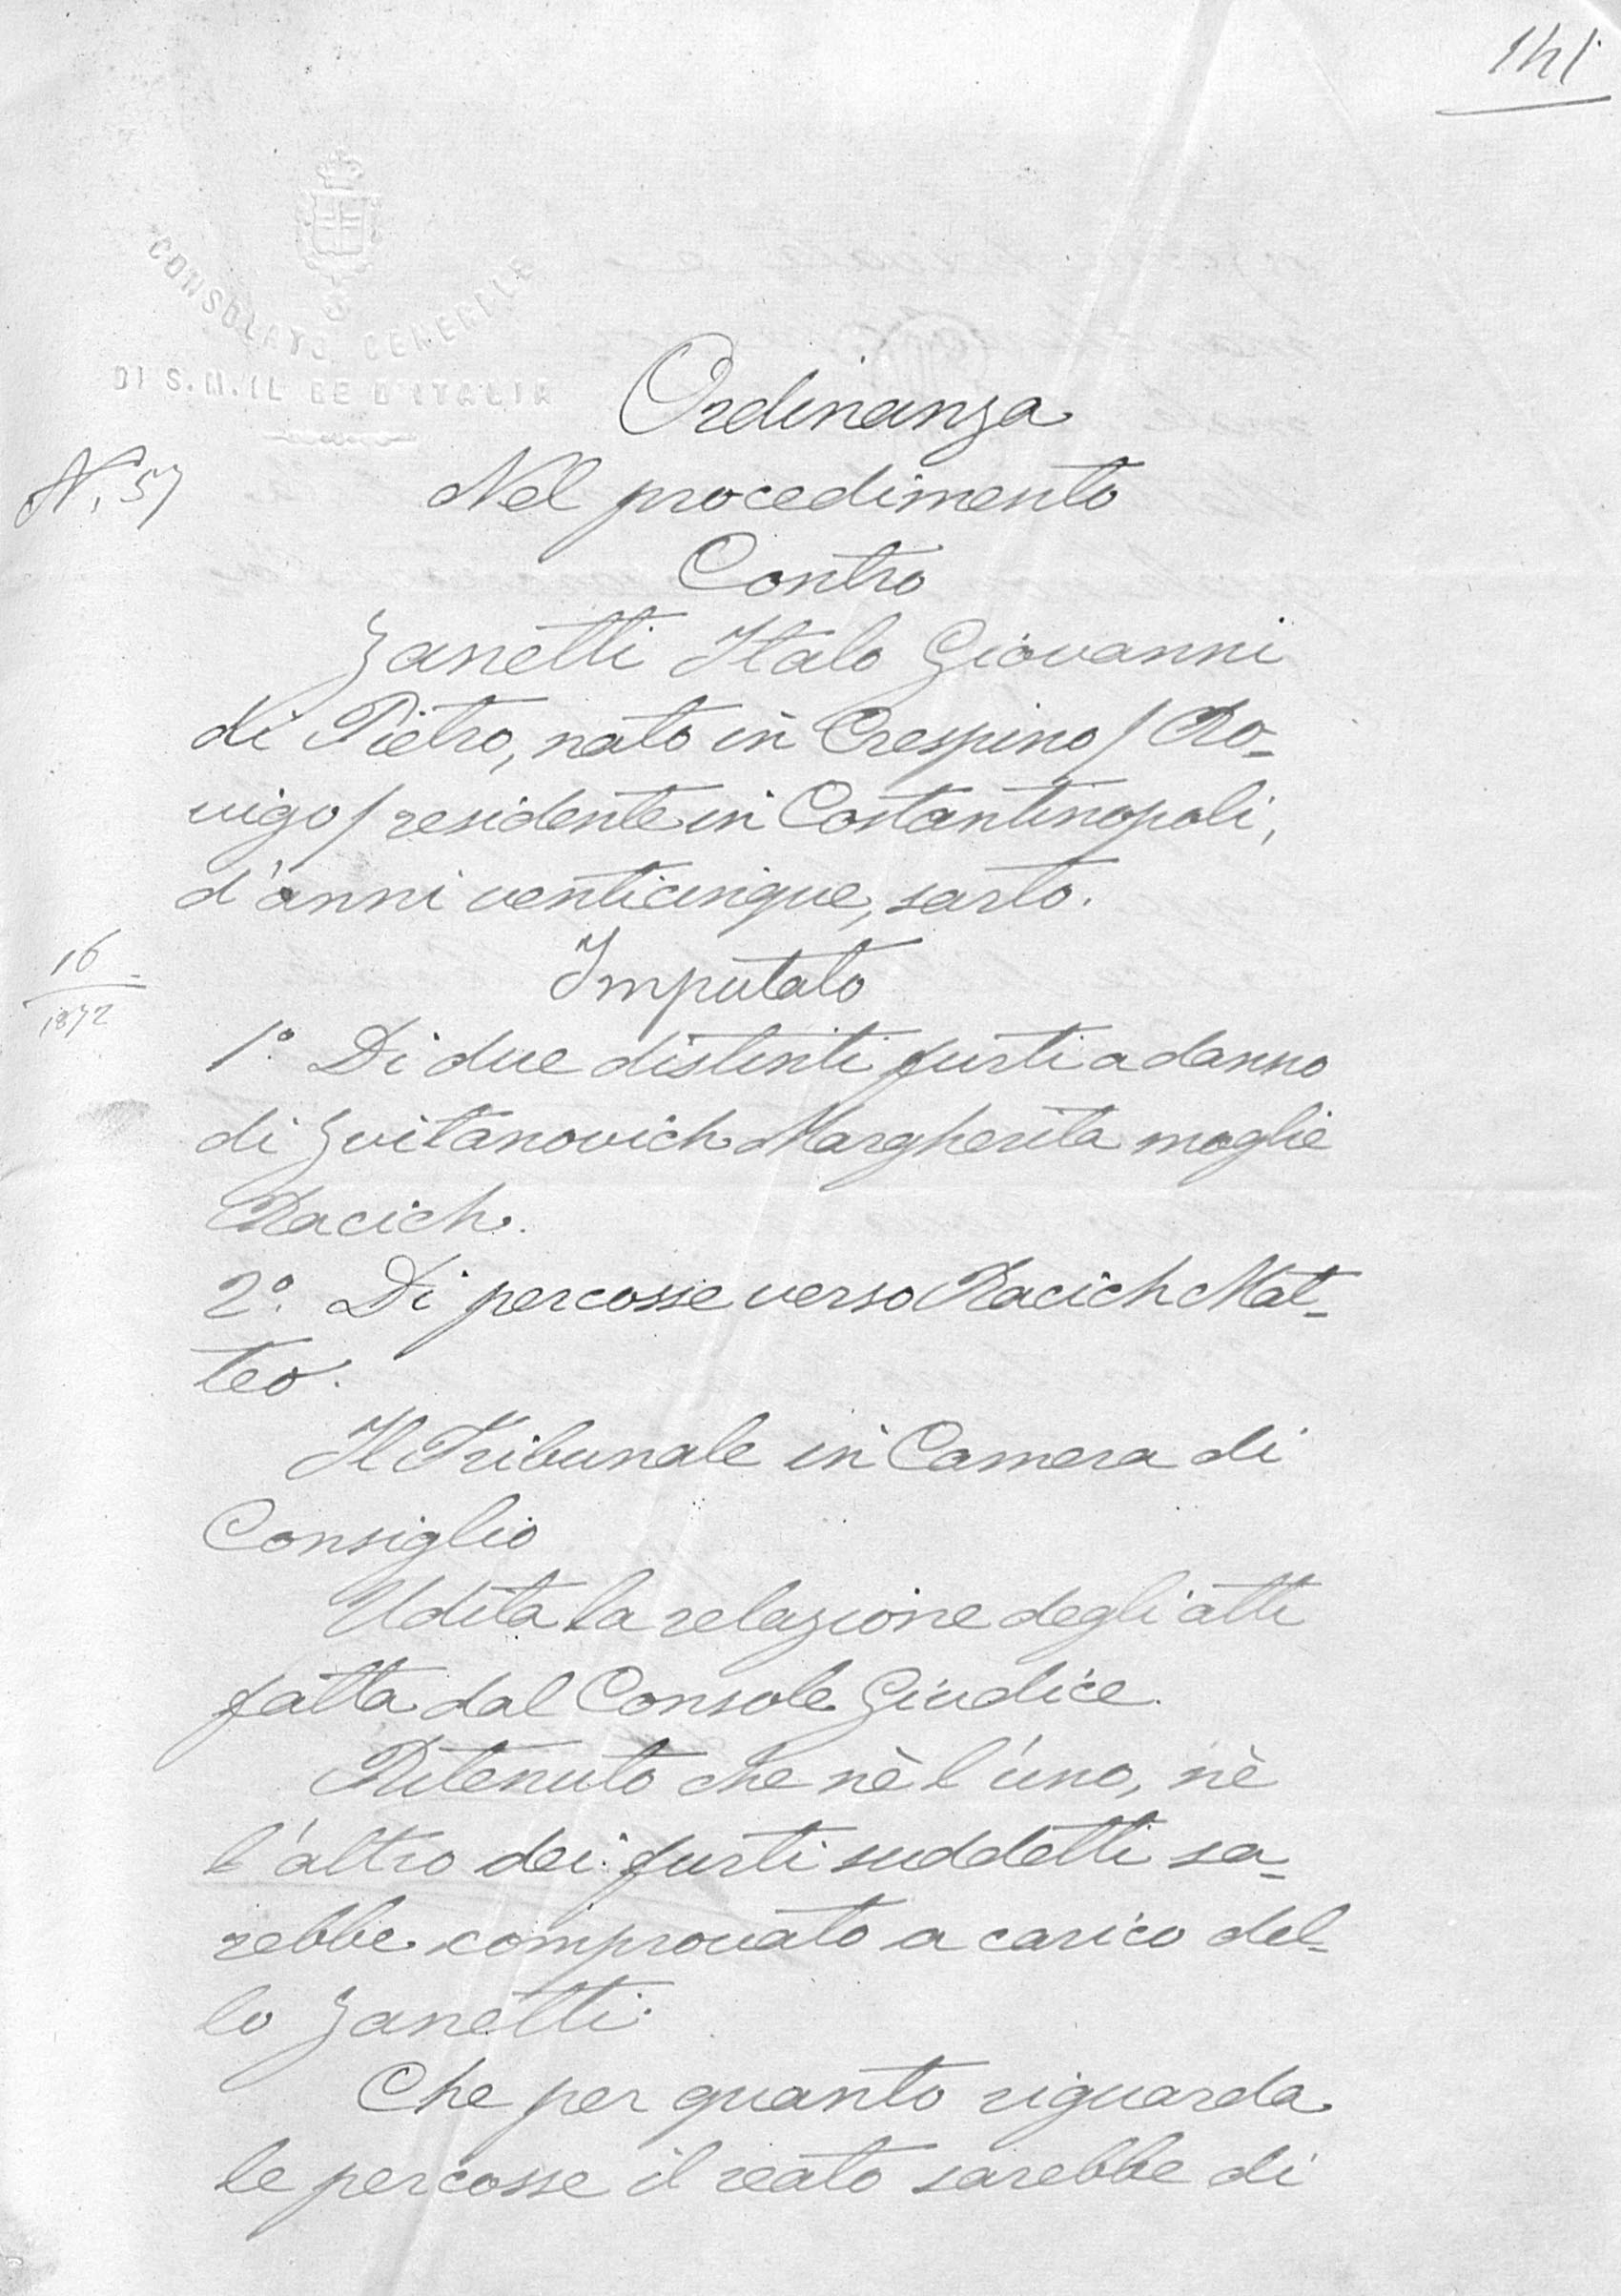 141
CONSOLATO GENERALE
DI S. M. IL RE D'ITALIA
Ordinanza
N. 57
Nel procedimento
Contro
Zanetti Italo Giovanni
di Pietro, nato in Crespino / Ro-
vigo / residente in Costantinopoli,
d'anni venticinque, sarto.
Imputato
16
1872
1º. Di due distinti furti a danno
di Zvitanovich Margherita moglie
Racich.
2º. Di percosse verso Racich Mat-
teo.
Il Tribunale in Camera di
Consiglio
Udita la relazione degli atti
fatta dal Console Giudice.
Ritenuto che nè l'uno, nè
l'altro dei furti suddetti sa-
rebbe comprovato a carico del-
lo Zanetti.
Che per quanto riguarda
le percosse il reato sarebbe di